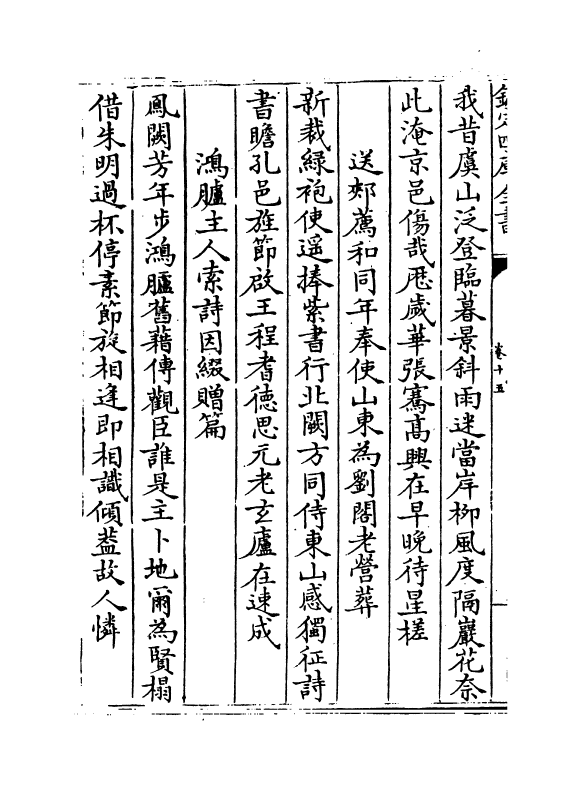 欽定四庫全書
卷十五
我昔虞山泛登臨暮景斜雨迷當岸柳風度隔巖花奈
此淹京邑傷哉厯歲華張騫髙興在早晚待星槎
送郟薦和同年奉使山東為劉閣老營葬
新裁綠袍使遥捧紫書行北闕方同侍東山感獨征詩
書瞻孔邑旌節啟王程耆德思元老玄廬在速成
鴻臚主人索詩因綴贈篇
鳳闕芳年步鴻臚舊藉傳觀臣誰是主卜地爾為賢榻
借朱明過杯停素節旋相逢即相識傾葢故人憐